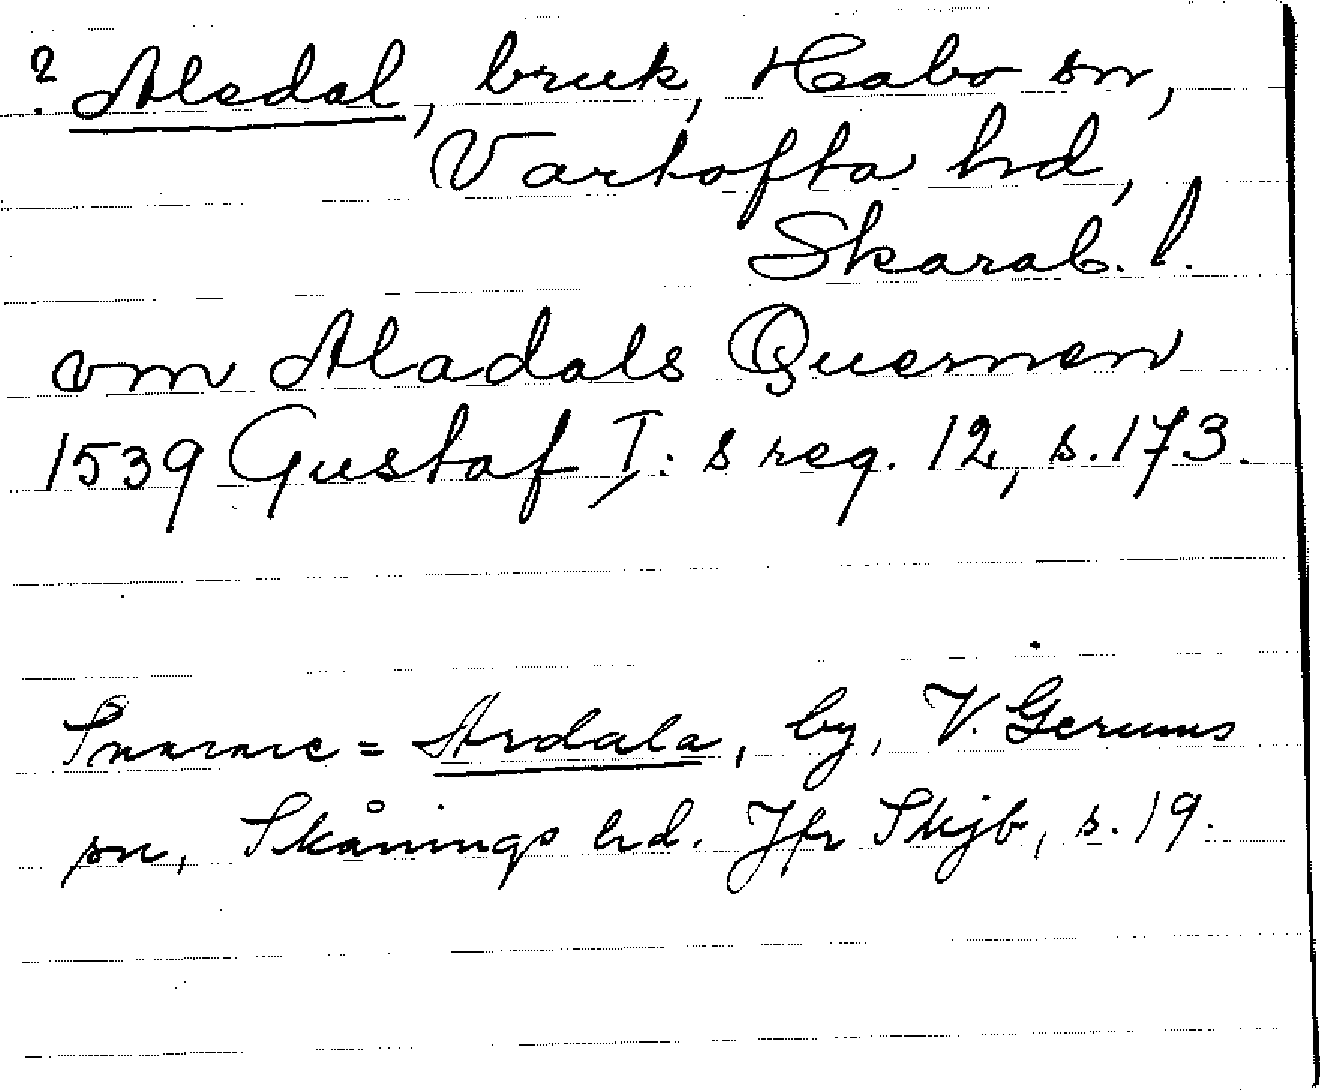 ? Alsdal, bruk, Habo sn,
Vartofta hd,
Skarab. l.
om Aladals Quernen
1539 Gustaf I: s reg. 12, s. 173.
Snarare = Ardala, by, V. Gerums
sn, Skånings hd. Jfr Skjb, s. 19.